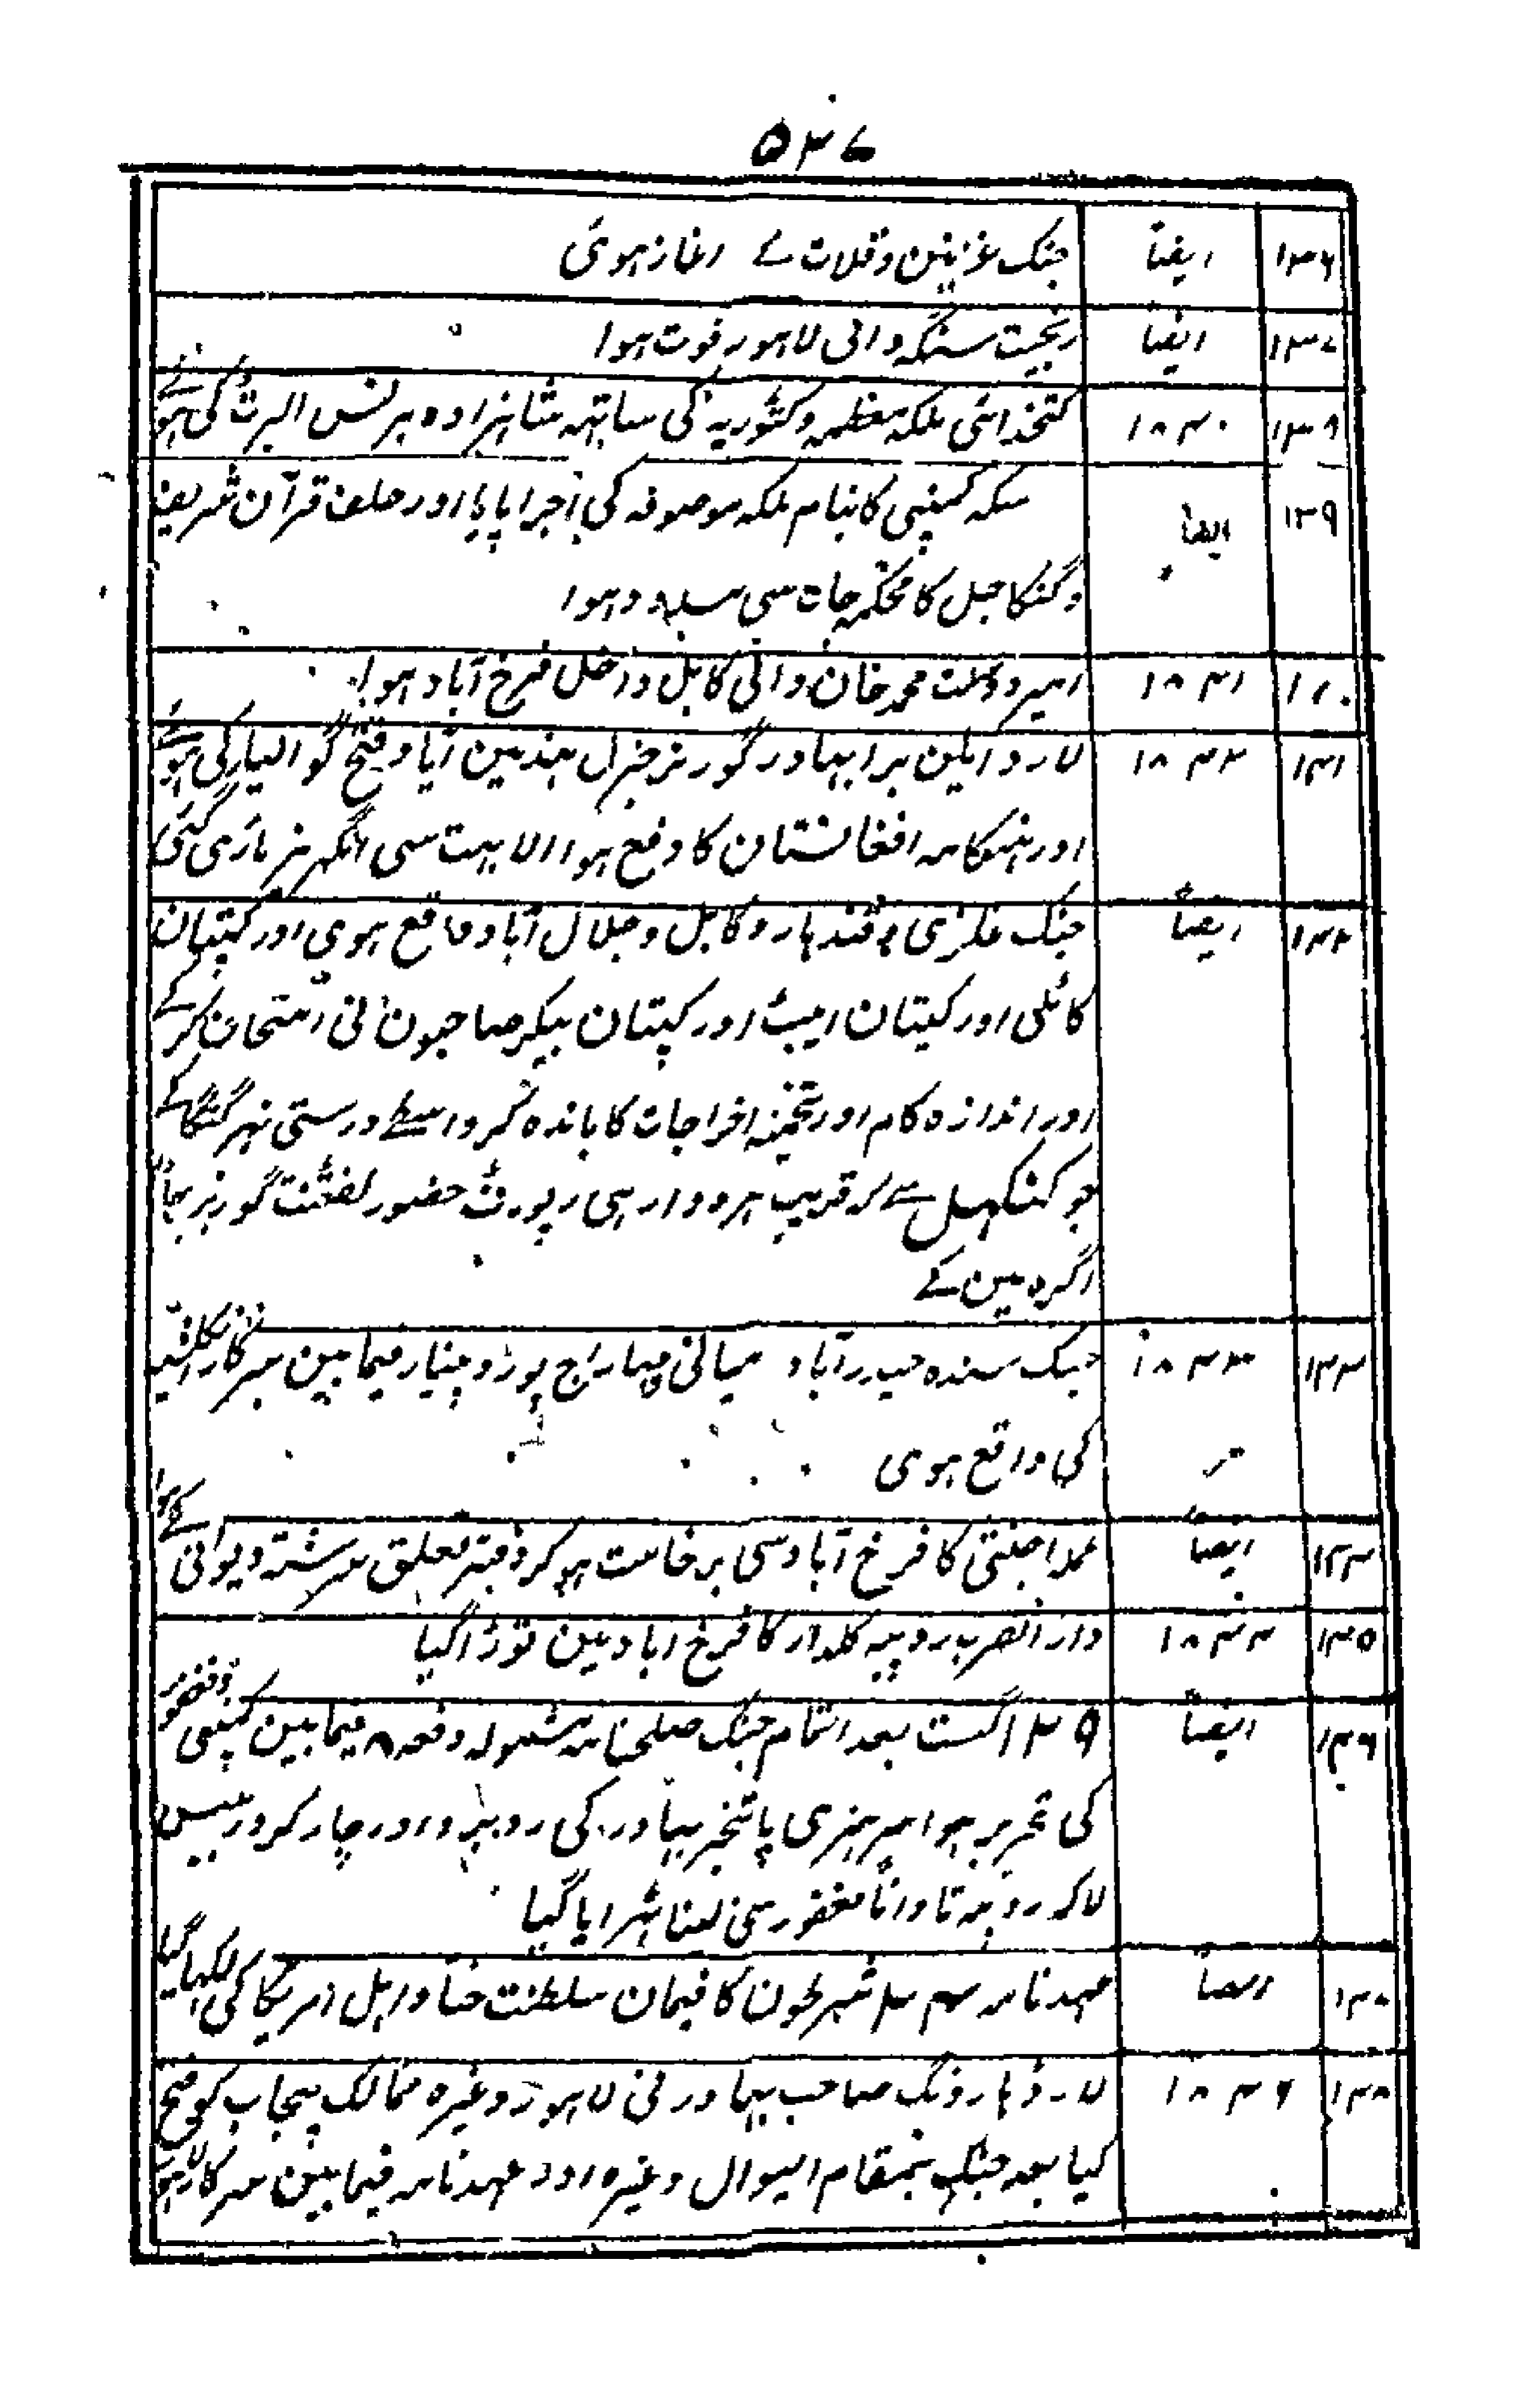 ۵۳۷
۱۳۶ ایضاً جنک غزنین و قلات کے اغاز ہوئی
۱۳۷ ایضاً رنجیت سنگہ والی لاہور فوت ہوا
۱۳۸ ۱۸۴۰ کتخدائی ملکہ معظمہ وکٹوریہ کی ساتہہ شاہزادہ پرنس البرٹ کی ہوئے
۱۳۹ ایضاً سکہ کمپنی کا بنام ملکہ موصوفہ کی اجرا پایا اور حلف قرآن شریف
و گنگا جل کا محکمہ جات سی مسدود ہوا
۱۴۰ ۱۸۴۱ امیر دوست محمد خان والی کابل داخل فرخ آباد ہوا
۱۴۱ ۱۸۴۲ لارد ایلن برا بہادر گورنر جنرل ہند مین آیا و فتح گوالیار کی ہوئے
اور ہنگامہ افغانستان کا دفع ہوا الا بہت سی انگہریز مارے گئی
۱۴۲ ایضاً جنک غلزی و قندہار و کابل و جلال آباد واقع ہوی اور کپتان
کاٹلی اور کپتان ایبٹ اور کپتان بیکر صاحبون نی امتحان کر کے
اور اندازہ کام اور تخمینہ اخراجات کا باندہ کر واسطے درستی نہر گنگا کے
جو کنکہل سے کہ قریب ہردوار ہی رپورٹ حضور لفٹنٹ گورنر بہادر
اگرہ مین کے
۱۴۳ ۱۸۴۳ جنک سندہ حیدرآباد میانی مہاراج پور و پنیار فیما بین سرکار
کی واقع ہوی
۱۴۴ ایضاً عملہ اجنٹی کا فرخ آباد سی برخاست ہو کر دفتر متعلق سرشتہ دیوانی کے ہوا
۱۴۵ ۱۸۴۴ دار الضرب روپیہ کلدار کا فرخ اباد مین توڑا گیا
۱۴۶ ایضاً ۲۹ اگست بعد اتمام جنک صلحنامہ مشمولہ دفعہ ۸ فیما بین کمپنی و فغفور
کی تحریر ہوا سر ہنری پاتنجر بہادر کی روبرو اور چار کرور بیس
لاکہ روپیہ تاواناً فغفور سی لینا ٹہرایا گیا
۱۴۷ ایضاً عہدنامہ ۳۴ شرطون کا فیمابن سلطنت ختا و اہل امریکا کی لکہا گیا
۱۴۸ ۱۸۴۶ لارڈ ہارڈنگ صاحب بہادر نی لاہور وغیرہ ممالک پنجاب کو فتح
کیا بعد جنک بمقام الیوال وغیرہ اور عہدنامہ فیما بین سرکار لاہور